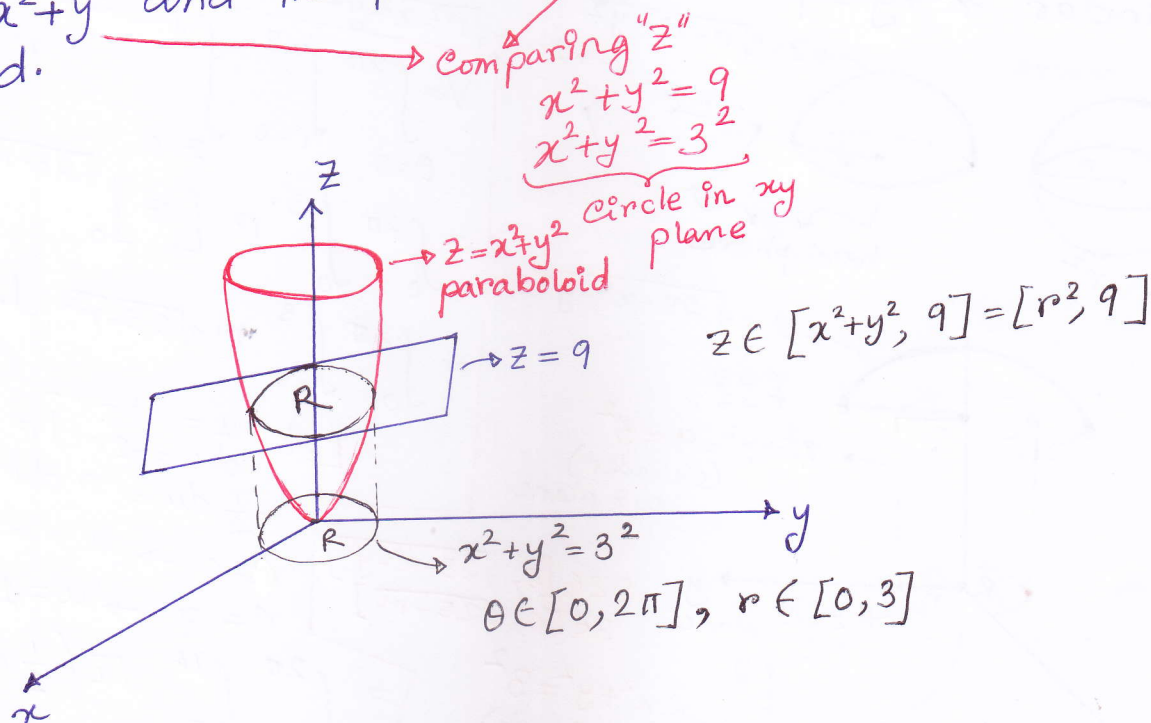 x²+y and
d.
Comparing "Z"
x²+y²=9
x²+y²=3²
Circle in xy
plane
Z
Z=x²+y²
paraboloid
Z∈[x²+y², 9]=[r², 9]
Z=9
R
R
y
x²+y²=3²
θ∈[0,2π], r∈[0,3]
x